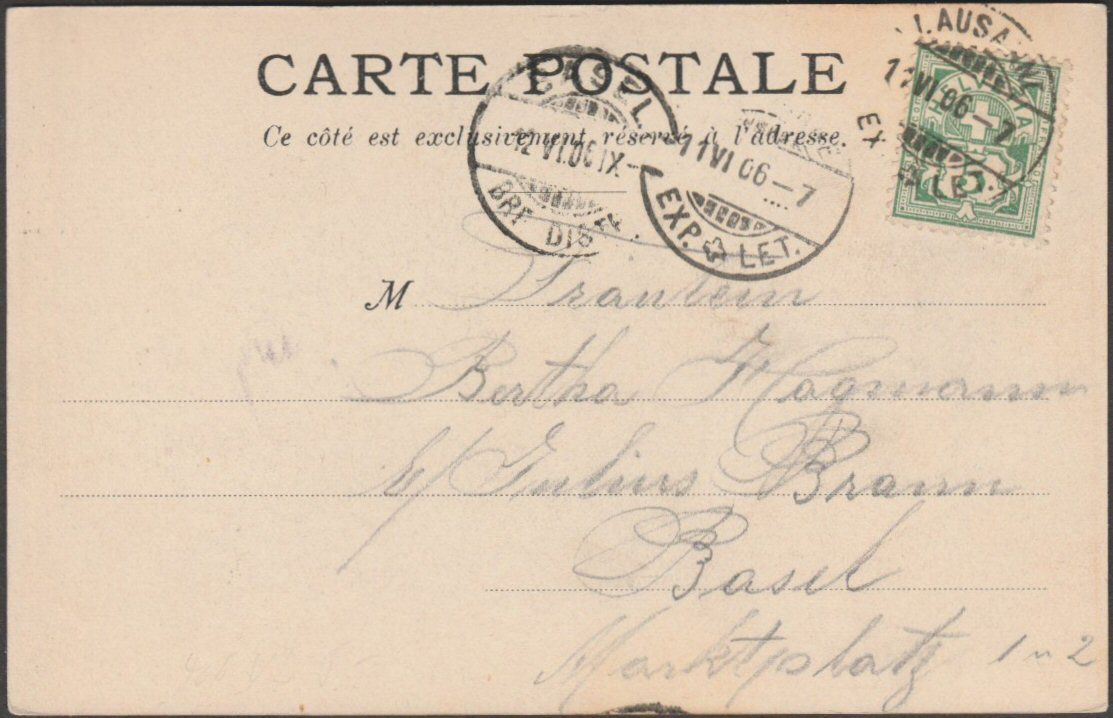 CARTE POSTALE
Ce côté est exclusivement réservé à l'adresse.
BASEL
12.VI.06 IX
BRF. DIST
11 VI 06 – 7
EXP. LET.
LAUSANN
11 VI 06 – 7
EX LET.
5
M Fräulein
Bertha Hagmann
b/ Julius Brann
Basel
Marktplatz 1 u 2